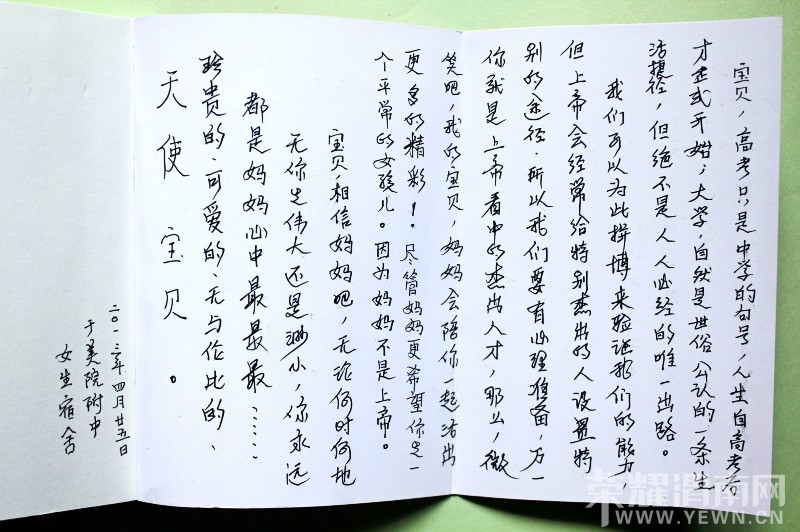 宝贝，高考只是中学的句号，人生自高考后
才正式开始；大学，自然是世俗公认的一条生
活捷径，但绝不是人人必经的唯一出路。
我们可以为此拼搏来验证我们的能力，
但上帝会经常给特别杰出的人设置特
别的途径．所以我们要有心理准备，万一
你就是上帝看中的杰出人才，那么，微
笑吧，我的宝贝，妈妈会陪你一起活出
更多的精彩！尽管妈妈更希望你是一
个平常的女孩儿。因为妈妈不是上帝。
宝贝，相信妈妈吧，无论何时何地
无论你是伟大还是渺小，你永远
都是妈妈心中最最最……
珍贵的、可爱的、无与伦比的、
天使宝贝。
二〇一三年四月廿五日
于美院附中
女生宿舍
荣耀渭南网
WWW.YEWN.CN